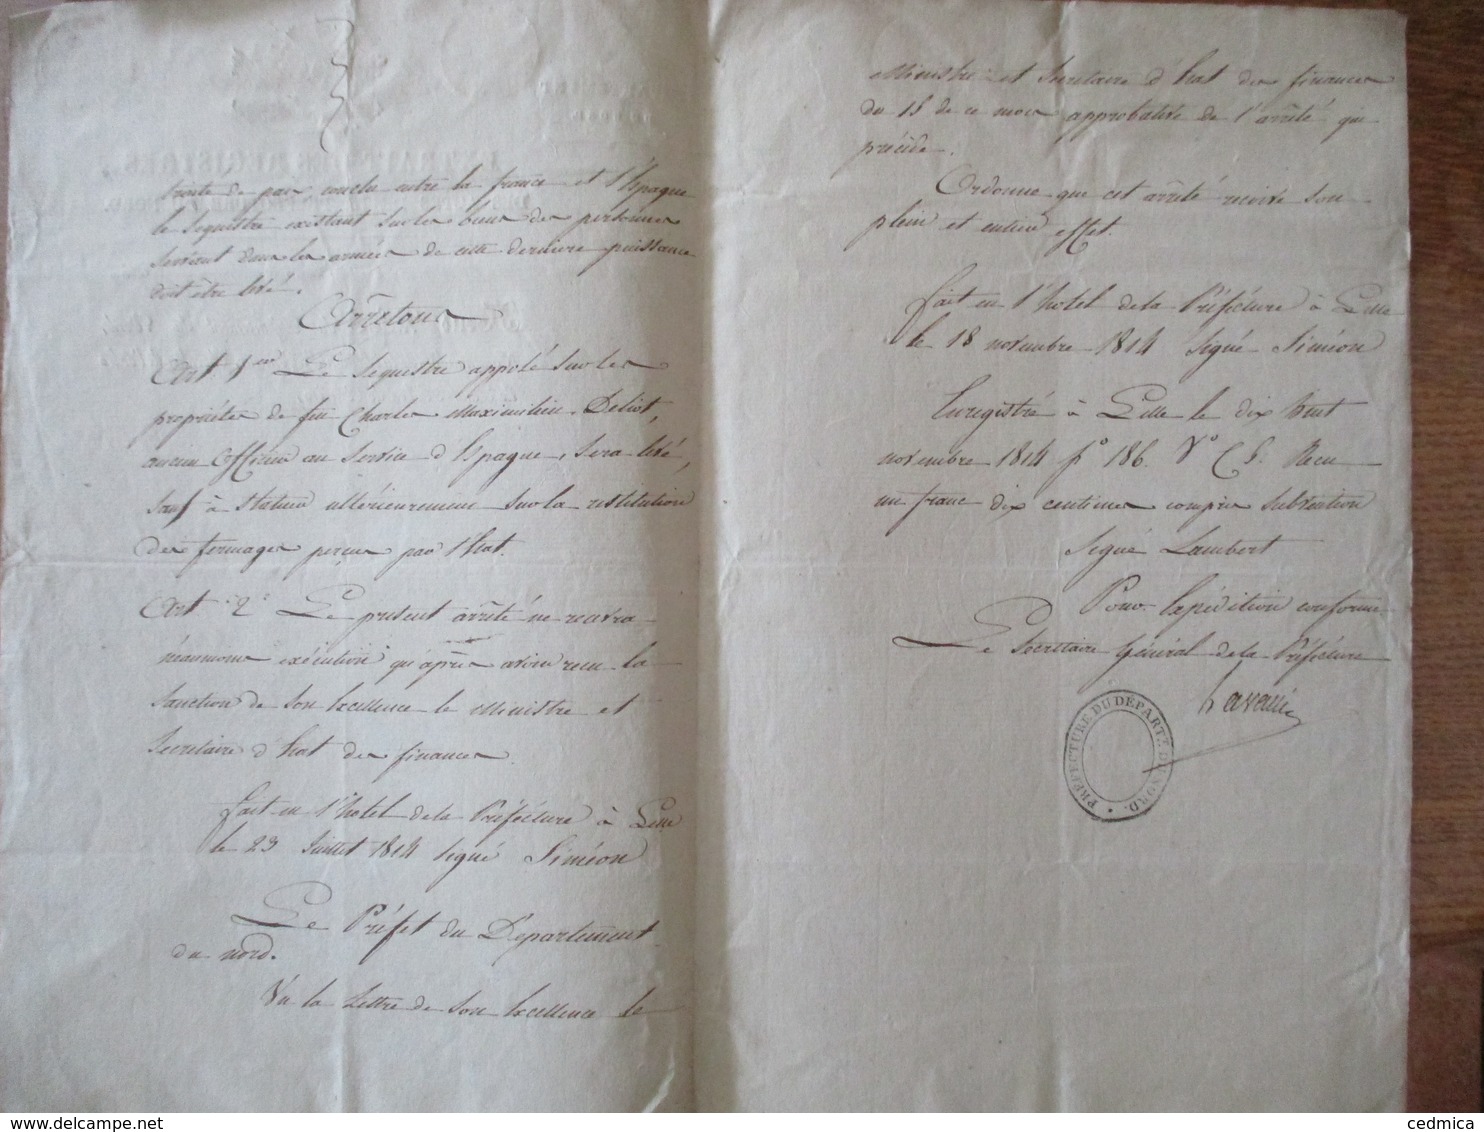 traité de paix conclu entre la france et l'Espagne
le sequestre existant sur les biens des personnes
servant dans les armées de cette derniere puissance
doit être levé.
Arrêtons
Art. 1er Le sequestre apposé sur les
propriétés de feu Charles Maximilien Deliot,
ancien officier au service d'Espagne, sera levé,
sauf à statuer ultérieurement sur la restitution
des fermages perçus par l'état.
Art. 2e Le présent arrêté ne recevra
néanmoins exécution qu'après avoir reçu la
sanction de son Excellence le Ministre et
Secretaire d'état des finances.
fait en l'hotel de la Préfecture à Lille
le 23 Juillet 1814 signé Siméon
Le Préfet du Département
du nord.
Vu la Lettre de son Excellence le
Ministre et Secretaire d'état des finances
du 15 de ce mois approbative de l'arrêté qui
précède.
Ordonne que cet arrêté recoive son
plein et entier effet
fait en l'hotel de la Préfecture à Lille
le 18 novembre 1814 Signé Siméon
Enregistré à Lille le dix huit
novembre 1814 fo 186. Vo C 5. Recu
un franc dix centimes compris subvention
signé Lambert
Pour Expédition conforme
Le Secretaire Général de la Préfecture
PREFECTURE DU DEPARTT. DU NORD.
cedmica